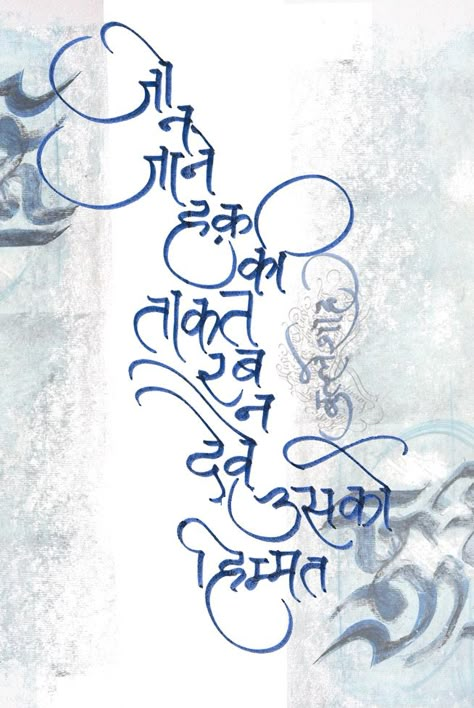 जो
न
जाने
हक़
की
ताकत
रब
न
देवे
उसको
हिम्मत